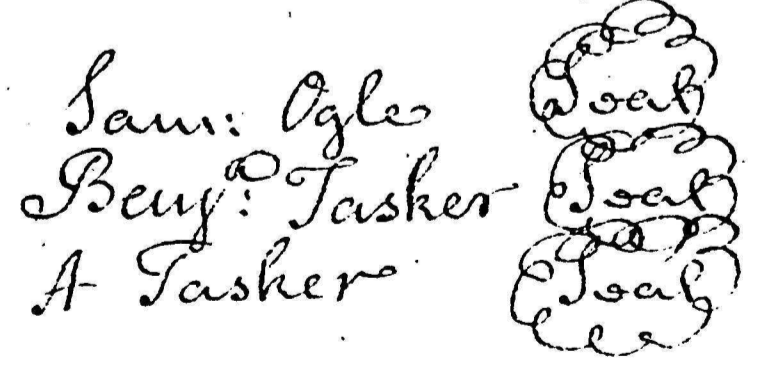 Sam: Ogle Seal
Benj: Tasker Seal
A Tasker Seal